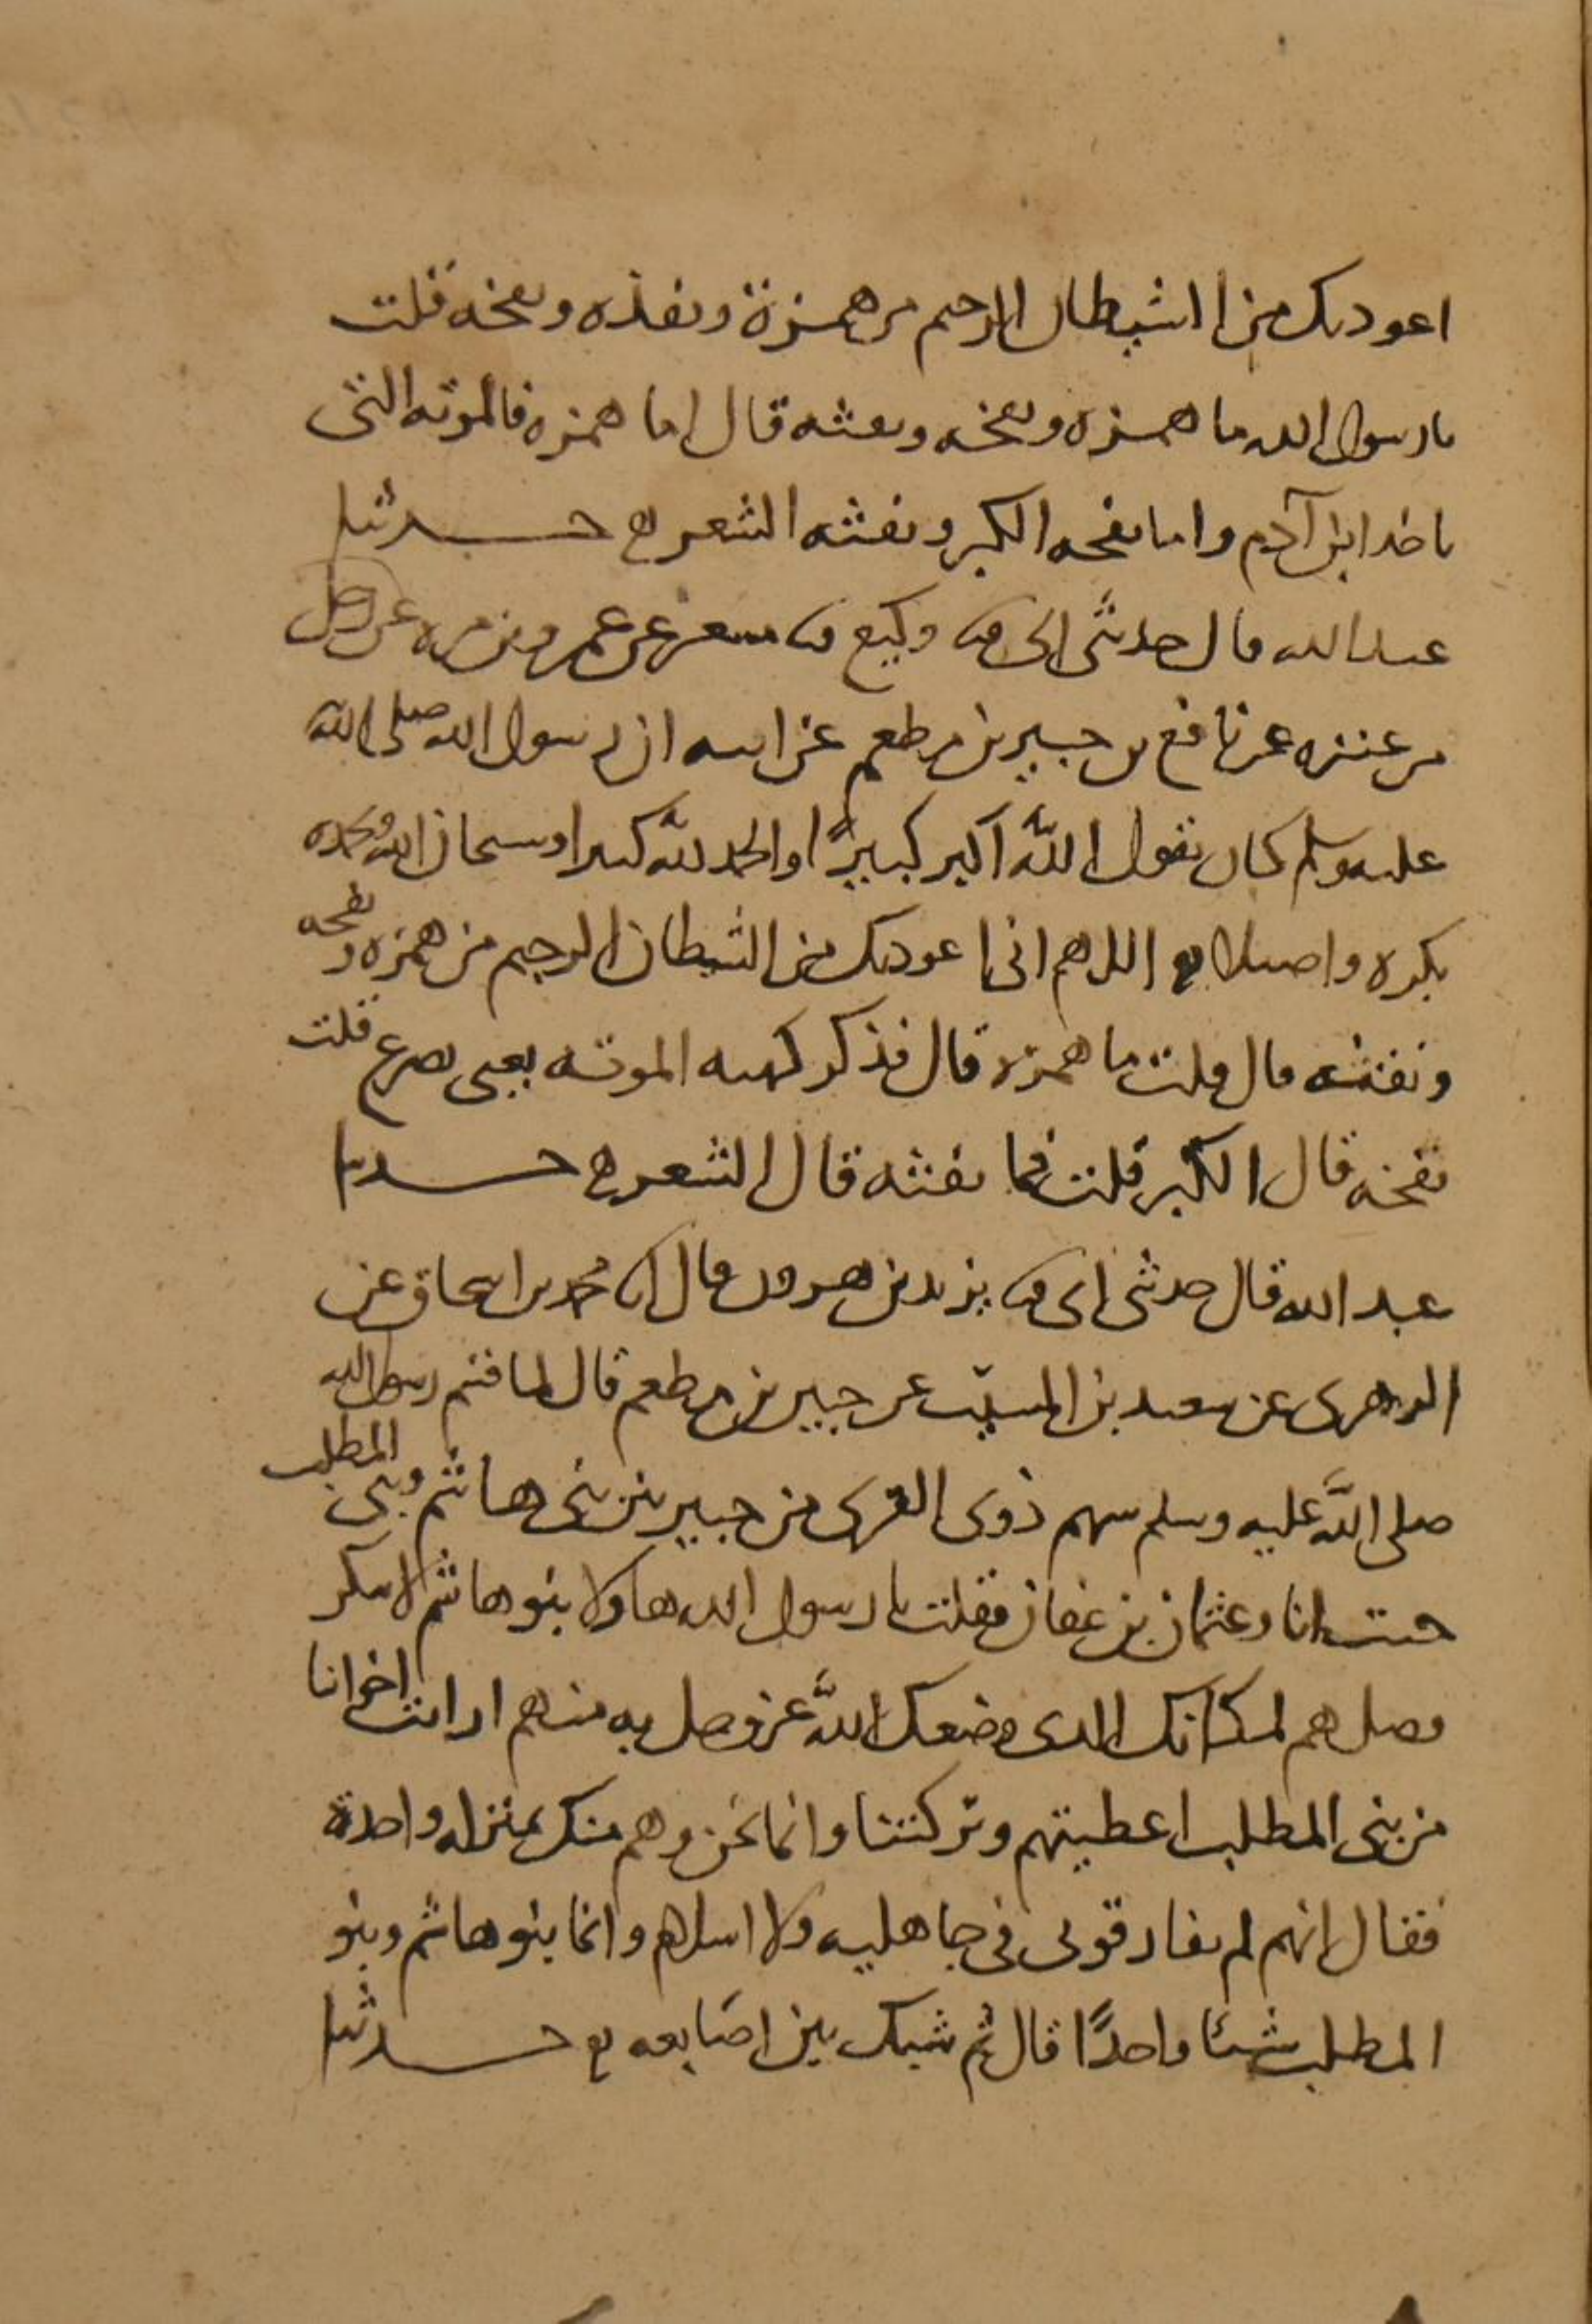 اعوذ بك من الشيطان الرجيم من همزة ونفثه ونفخه قلت
يا رسول الله ما همزه ونفخه ونفثه قال اما همزه فالموته التى
تاخذ ابن آدم واما نفخه الكبر ونفثه الشعر ه حدثنا
عبد الله قال حدثنى ابى ثنا وكيع ثنا مسعر عن عمرو بن مره عن رجل
من عنزه عن نافع بن جبير بن مطعم عن ابيه ان رسول الله صلى الله
عليه وسلم كان يقول الله اكبر كبيرًا والحمد لله كثيرا وسبحان الله وبحمده
بكره واصيلا ه اللهم انى اعوذ بك من الشيطان الرجيم من همزه ونفخه
ونفثه قال قلت ما همزه قال فذكر كهيه الموته يعنى يصرع قلت
نفخه قال الكبر قلت فما نفثه قال الشعر ه حدثنا
عبد الله قال حدثنى ابى ثنا يزيد بن هرون قال انا محمد بن اسحاق عن
الزهرى عن سعيد بن المسيّب عن جبير بن مطعم قال لما قسم رسول الله
صلى الله عليه وسلم سهم ذوى القربى من خيبر بين بنى هاشم وبنى المطلب
جئت انا وعثمان بن عفان فقلت يا رسول الله هاولا بنو هاشم لا ينكر
فضلهم لمكانك الذى وضعك الله عز وجل به منهم ارايت اخواننا
من بنى المطلب اعطيتهم وتركتنا وانما نحن وهم منك بمنزله واحدة
فقال انهم لم يفارقونى فى جاهليه ولا اسلام وانما بنو هاشم وبنو
المطلب شيئا واحدًا قال ثم شبك بين اصابعه ه حدثنا